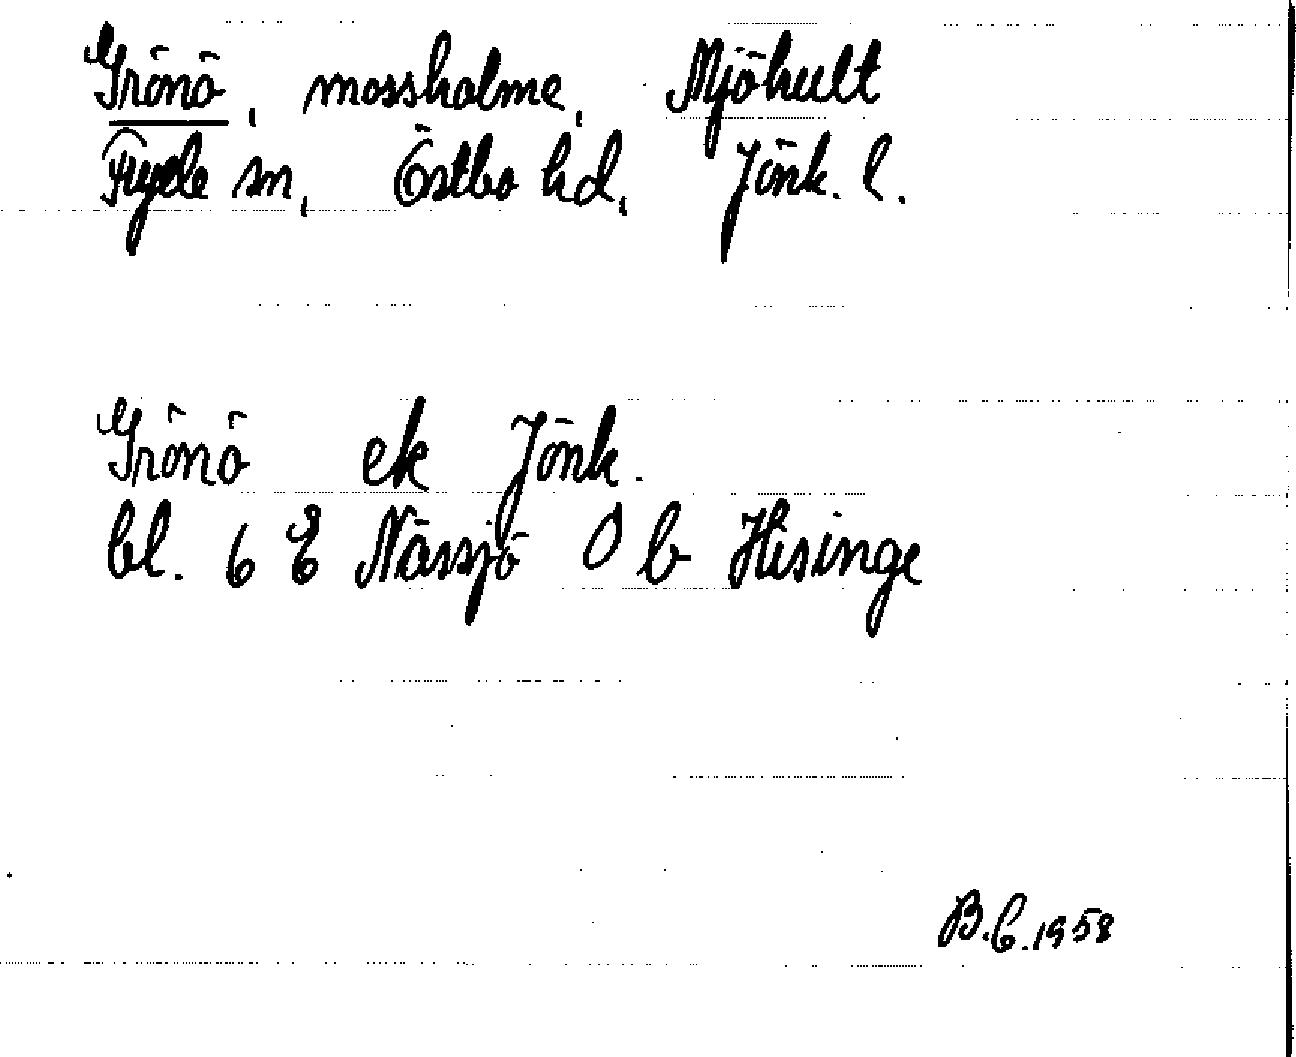 Grönö, mossholme, Mjöhult
Fryele sn, Östbo hd, Jönk. l.
Grönö ek Jönk.
bl. 6 E Nässjö 0 b Hisinge
B.C. 1958